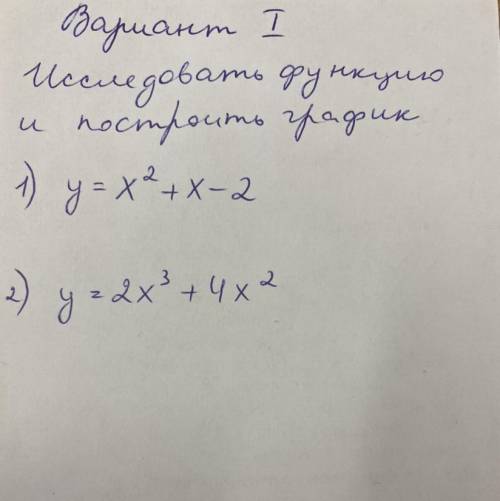 Вариант I
Исследовать функцию
и построить график
1) y = x² + x - 2
2) y = 2x³ + 4x²